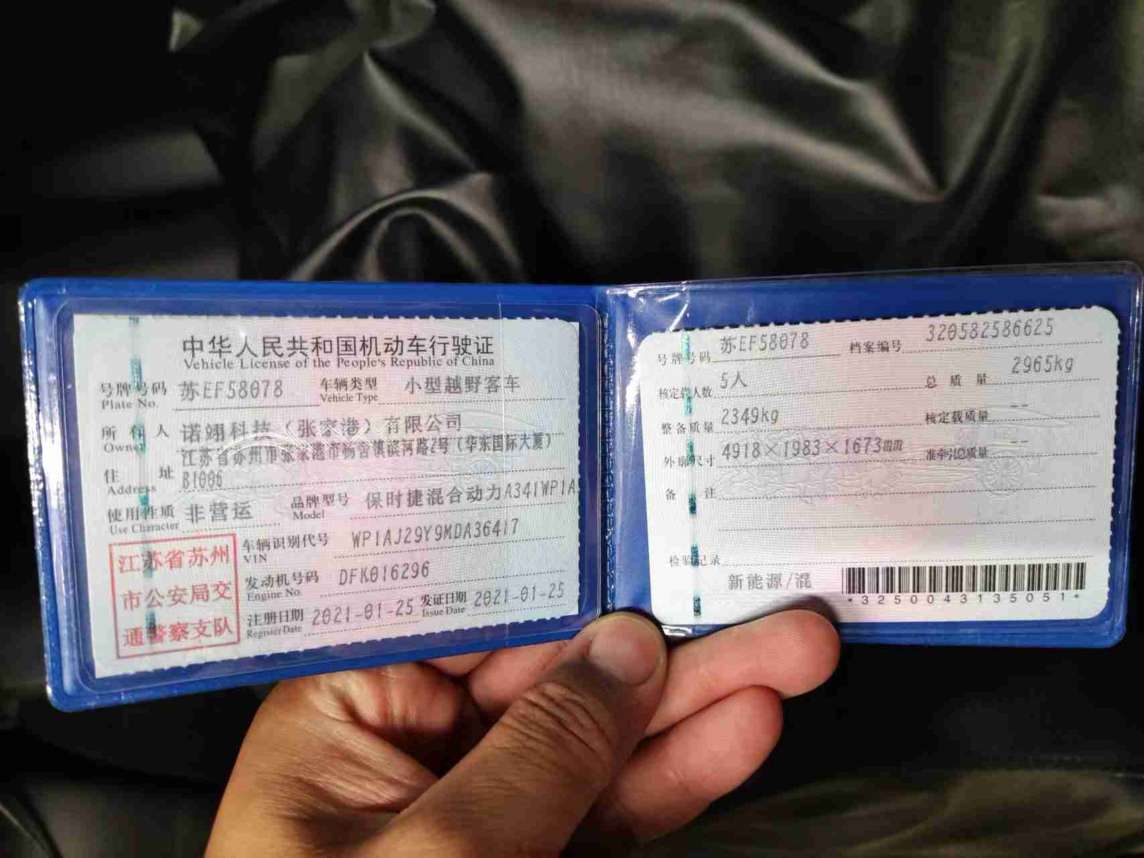 中华人民共和国机动车行驶证
Vehicle License of the People's Republic of China
号牌号码 苏EF58078 车辆类型 小型越野客车
Plate No. Vehicle Type
所有人 诺翊科技（张家港）有限公司
Owner
住址 江苏省苏州市张家港市杨舍镇滨河路2号（华东国际大厦）
Address B1006
使用性质 非营运 品牌型号 保时捷混合动力A341WP1A
Use Character Model
江苏省苏州
市公安局交
通警察支队
车辆识别代号 WP1AJ29Y9MDA36417
VIN
发动机号码 DFK016296
Engine No.
注册日期 2021-01-25 发证日期 2021-01-25
Register Date Issue Date
号牌号码 苏EF58078 档案编号 320582586625
核定载人数 5人 总质量 2965kg
整备质量 2349kg 核定载质量 --
外廓尺寸 4918×1983×1673 准牵引总质量 --
备注
检验记录
新能源/混
*3250043135051*